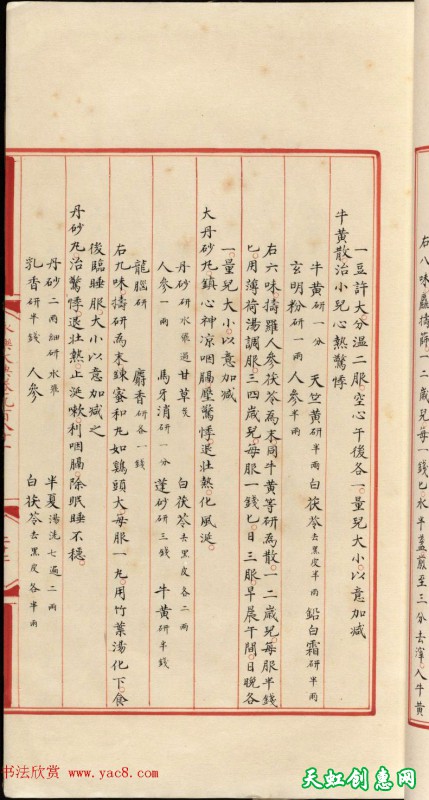 右八味麤擣篩一二歲兒每服一錢匕水半盞煎至三分去滓入牛黃
一豆許大分溫二服空心午後各一量兒大小以意加減
牛黃散治小兒心熱驚悸
牛黃研一分 天竺黃研半兩 白茯苓去黑皮半兩 鉛白霜研半兩
玄明粉研一兩 人參半兩
右六味擣羅人參茯苓為末同牛黃等研為散一二歲兒每服半錢
匕用薄荷湯調服三四歲兒每服一錢匕日三服早晨午間日晚各
一量兒大小以意加減
大丹砂丸鎮心神涼咽膈壓驚悸退壯熱化風涎
丹砂研水飛過 甘草炙 白茯苓去黑皮各二兩
人參一兩 馬牙消研一分 蓬砂研三錢 牛黃研半錢
龍腦研 麝香研各一錢
右九味擣研為末鍊蜜和丸如鷄頭大每服一丸用竹葉湯化下食
後臨睡服大小以意加減之
丹砂丸治驚悸退壯熱止涎嗽利咽膈除眠睡不穩
丹砂二兩細研水飛 半夏湯洗七遍二兩
乳香研半錢 人參 白茯苓去黑皮各半兩
书法欣赏 www.yac8.com
天虹创惠网